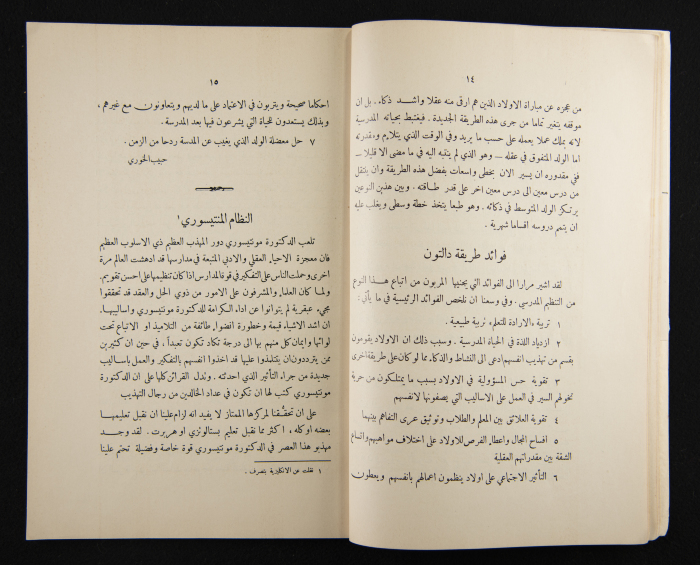 ١٤
من عجزه عن مباراة الاولاد الذين هم ارقى منه عقلا واشد ذكاء . بل ان
موقفه يتغير تماما من جرى هذه الطريقة الجديدة . فيغتبط بحياته المدرسية
لانه بذلك عملا يعمله على حسب ما يريد وفي الوقت الذي يتلاءم ومقدرته
اما الولد المتفوق في عقله — وهو الذي لم ينتبه اليه في ما مضى الا قليلا —
ففي مقدوره ان يسير الان بخطى واسعات بفضل هذه الطريقة وان ينتقل
من درس معين الى درس معين اخر على قدر طاقته . وبين هذين النوعين
يرتكز الولد المتوسط في ذكائه . وهو طبعا يتخذ خطة وسطى ويغلب عليه
ان يتمم دروسه اقساما شهرية .
فوائد طريقة دالتون
لقد اشير مرارا الى الفوائد التي يجنيها المربون من اتباع هذا النوع
من التنظيم المدرسي . وفي وسعنا ان نلخص الفوائد الرئيسية في ما يأتي :
١ تربية الارادة للتعلم تربية طبيعية .
٢ ازدياد اللذة في الحياة المدرسية . وسبب ذلك ان الاولاد يقومون
بقسم من تهذيب انفسهم ادعى الى النشاط والذكاء مما لو كان على طريقة اخرى
٣ تقوية حس المسؤولية في الاولاد بسبب ما يمتلكون من حرية
تخولهم السير في العمل على الاساليب التي يصفونها لانفسهم
٤ تقوية العلائق بين المعلم والطلاب وتوثيق عرى التفاهم بينهما
٥ افساح المجال واعطاء الفرص للاولاد على اختلاف مواهبهم واتساع
الشقة بين مقدراتهم العقلية
٦ التأثير الاجتماعي على اولاد ينظمون اعمالهم بانفسهم ويعطون
١٥
احكاما صحيحة ويتربون في الاعتماد على ما لديهم ويتعاونون مع غيرهم ،
وبذلك يستعدون للحياة التي يشرعون فيها بعد المدرسة .
٧ حل معضلة الولد الذي يغيب عن المدرسة ردحا من الزمن .
حبيب الخوري
النظام المنتيسوري ١
تلعب الدكتورة مونتيسوري دور المهذب العظيم ذي الاسلوب العظيم
فان معجزة الاحياء العقلي والادبي المتبعة في مدارسها قد ادهشت العالم مرة
اخرى وحملت الناس على التفكير في قوة المدارس اذا كان تنظيمها على احسن تقويم .
ولما كان العلماء والمشرفون على الامور من ذوي الحل والعقد قد تحققوا
مجيء عبقرية لم يتوانوا عن اداء الكرامة للدكتورة مونتيسوري واساليبها .
ان اشد الاشياء قيمة وخطورة انضواء طائفة من التلاميذ او الاتباع تحت
لوائها وايمان كل منهم بها الى درجة تكاد تكون تعبداً ، في حين ان كثيرين
ممن يترددون ان يتتلمذوا عليها قد اخذوا انفسهم بالتفكير والعمل باساليب
جديدة من جراء التأثير الذي احدثته . وتدل القرائن كلها على ان الدكتورة
مونتيسوري كتب لها ان تكون في عداد الخالدين من رجال التهذيب
على ان تحققنا لمركزها الممتاز لا يفيد انه لزام علينا ان نقبل تعليمها
بعضه او كله ، اكثر مما نقبل تعليم بستالوتزي او هربرت . لقد وجد
مهذبو هذا العصر في الدكتورة مونتيسوري قوة خاصة وفضيلة تحتم علينا
١ نقلت عن الانكليزية بتصرف .